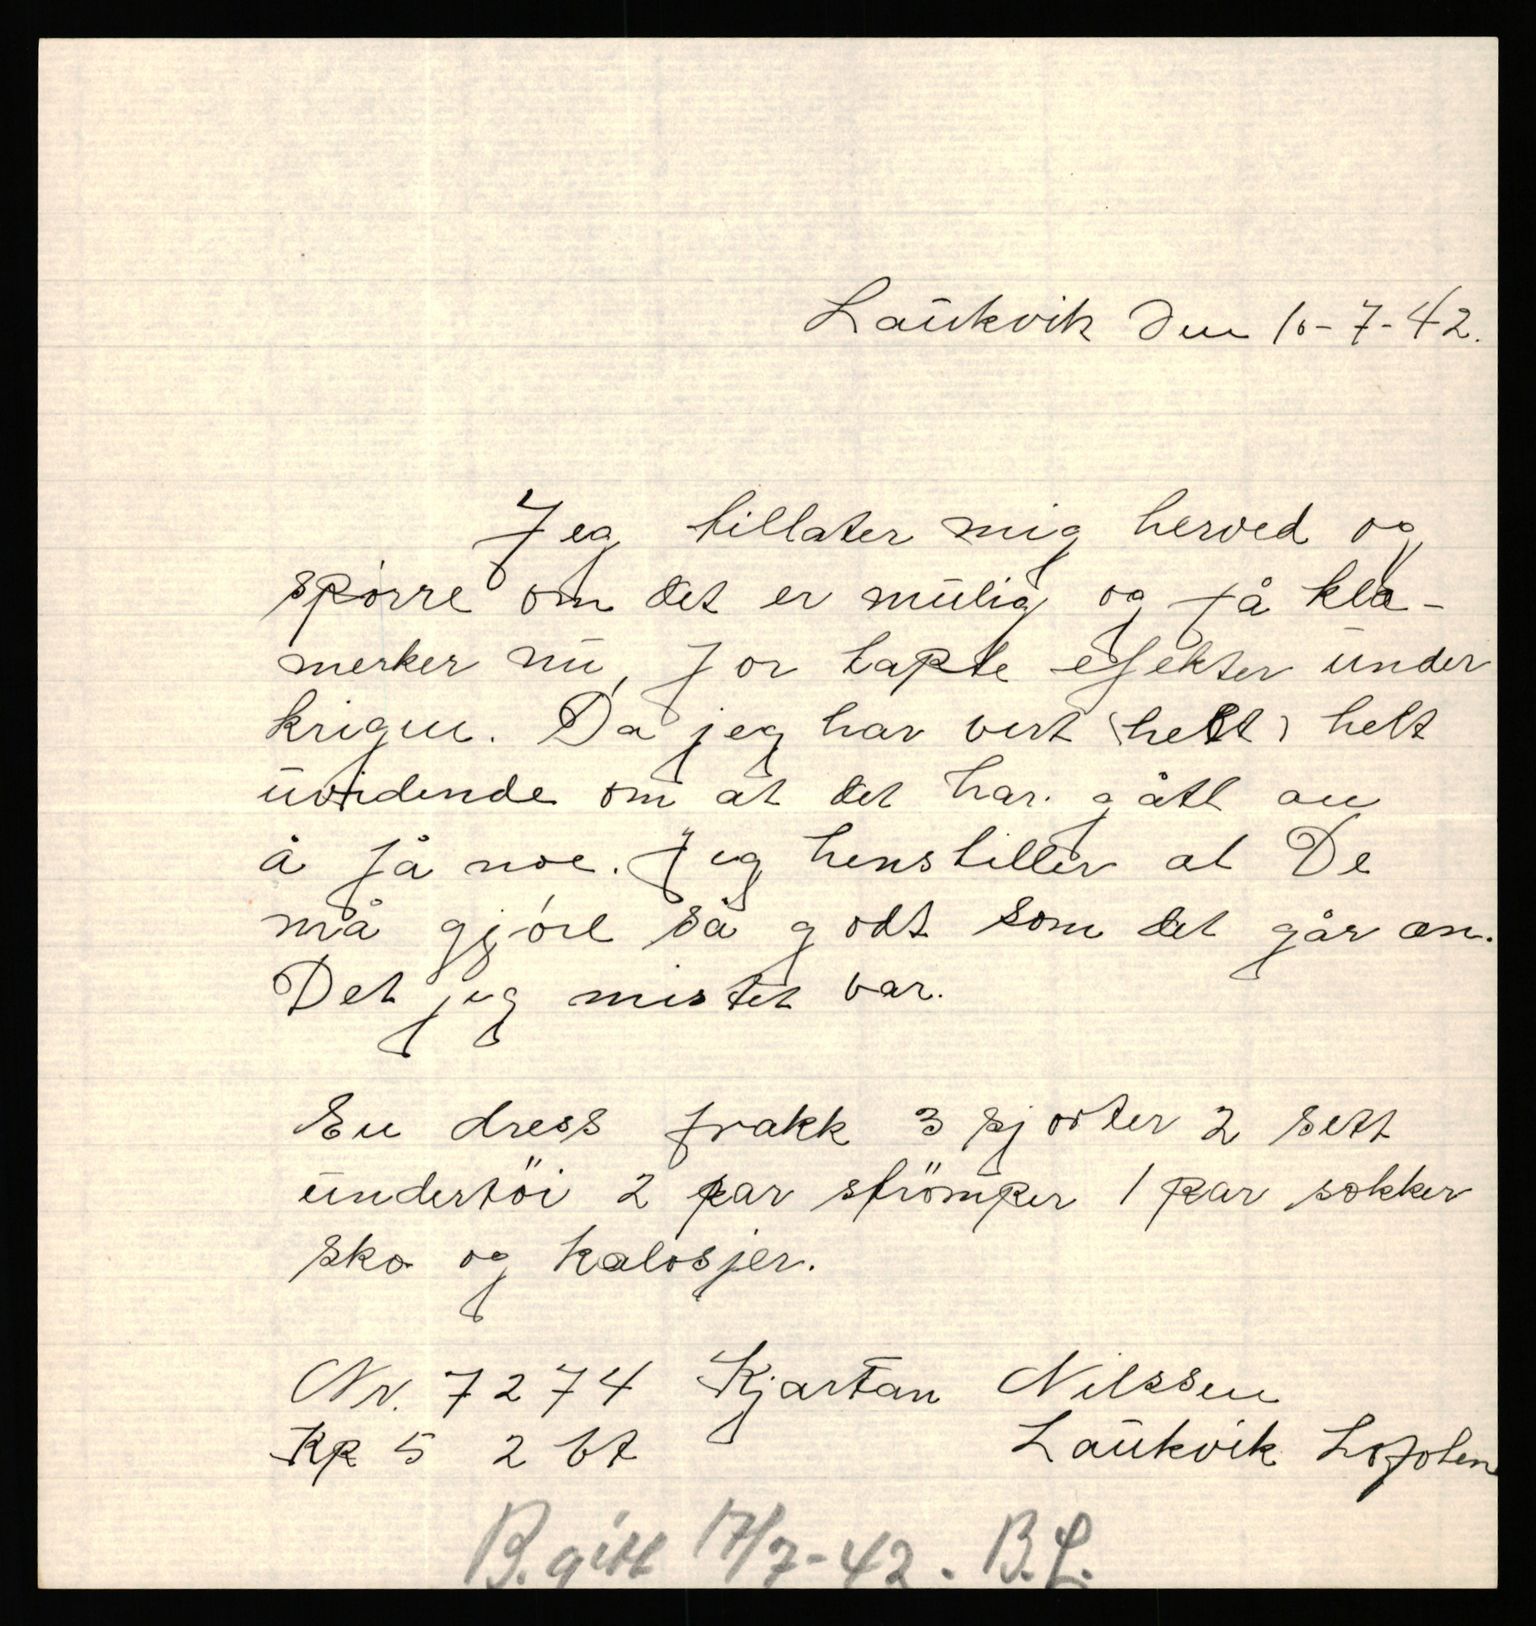 Laukvik den 10-7-42.
Jeg tillater mig herved og
spørre om det er mulig og få klæ-
merker nu, for tapte efekter under
krigen. Da jeg har vert (helt) helt
uvidende om at det har. gått an
å få noe. Jeg henstiller at De
må gjøre så godt som det går an.
Det jeg mistet var.
En dress frakk 3 skjorter 2 sett
undertöi 2 par strömper 1 par sokker
sko og kalosjer.
Nr. 7274 Kjartan Nilssen
Kp 5 2 bt Laukvik Lofoten
B. gitt 17/7-42. B.L.